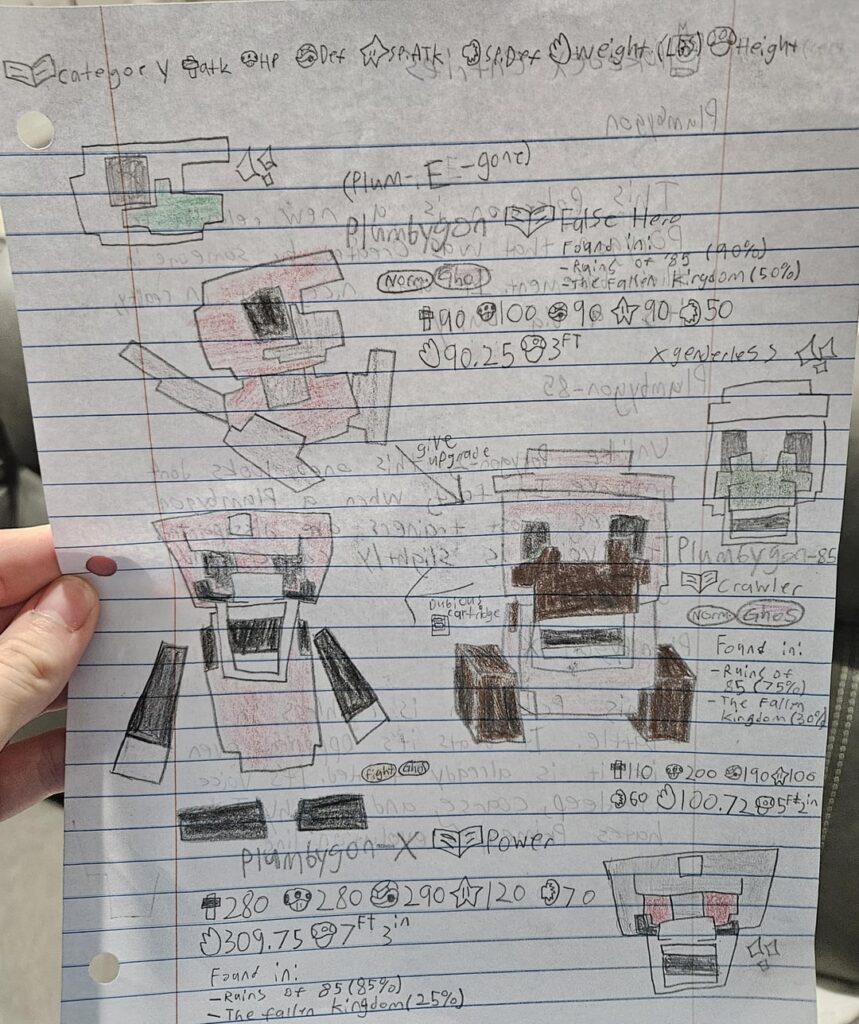 category atk HP Def SP.ATK SP.Def weight (LBS) Height
(Plum-, E -gone)
Plumbygon False Hero
Found in:
- Ruins of '85 (90%)
- The Fallen Kingdom (50%)
Norm Ghos
90 100 90 90 50
90.25 3FT
X genderless >
give
upgrade
Plumbygon-85
Crawler
Norm Ghos
Dubious
cartridge
Found in:
- Ruins of
85 (75%)
- The Fallen
kingdom (30%)
110 200 190 100
60 100.72 5Ft 2in
Fight Ghos
Plumbygon-X Power
280 280 290 120 70
309.75 7FT 3in
Found in:
- Ruins of 85 (85%)
- The fallen kingdom (25%)